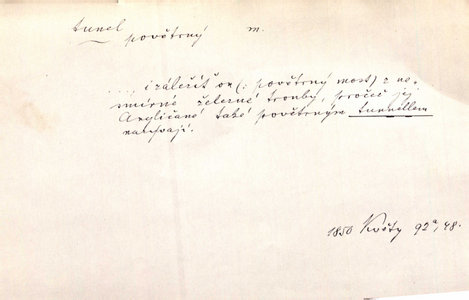 tunel m.
povětrný
...., i záležíť on (: povětrný most) z ne-
smírné železné trouby, pročež jej
Angličané také povětrným tunnellem
nazývají.
1850 Květy 92a, 48.